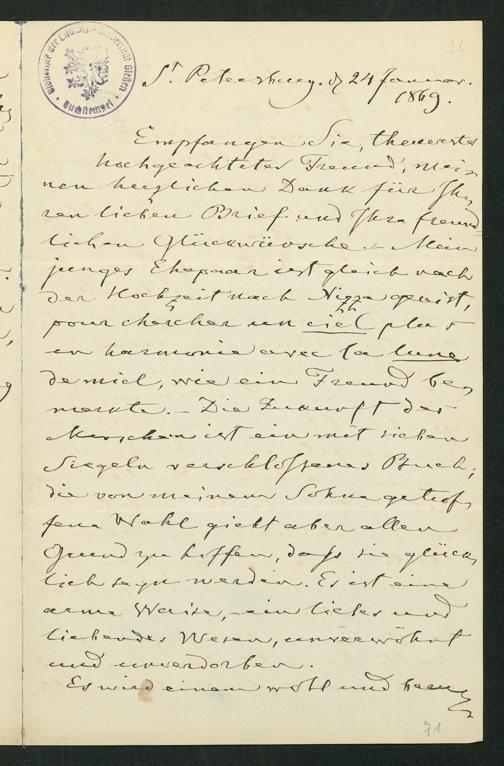 Bibliothek der Ludwigs-Universität Gießen
Buchstempel
St Petersburg. d. 24 Januar.
1869.
Empfangen Sie, theuerster
hochgeachteter Freund, mei-
nen herzlichen Dank für Ih-
ren lieben Brief und Ihre freund-
lichen Glückwünsche. – Mein
junges Ehepaar ist gleich nach
der Hochzeit nach Nizza gereist,
pour chercher un ciel plus
en harmonie avec la lune
de miel, wie ein Freund be-
merkte. – Die Zukunft der
Menschen ist ein mit sieben
Siegeln verschlossenes Buch;
die von meinem Sohne getrof-
fene Wahl giebt aber allen
Grund zu hoffen, daß sie glück-
lich seyn werden. Es ist eine
arme Waise, – ein liebes und
liebendes Wesen, unverwöhnt
und unverdorben.
Es wird einem wohl und
71